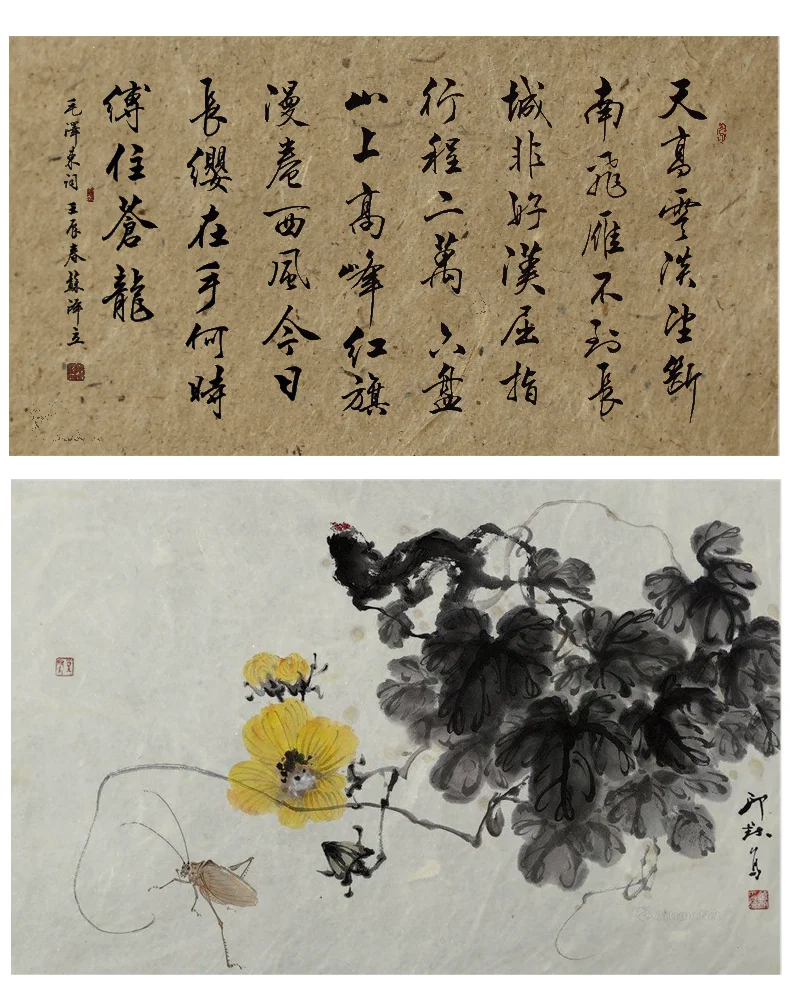 天高雲淡望斷
南飛雁不到長
城非好漢屈指
行程二萬六盤
山上高峰红旗
漫卷西風今日
長纓在手何時
縛住蒼龍
毛澤東詞 壬辰春蘇澤立